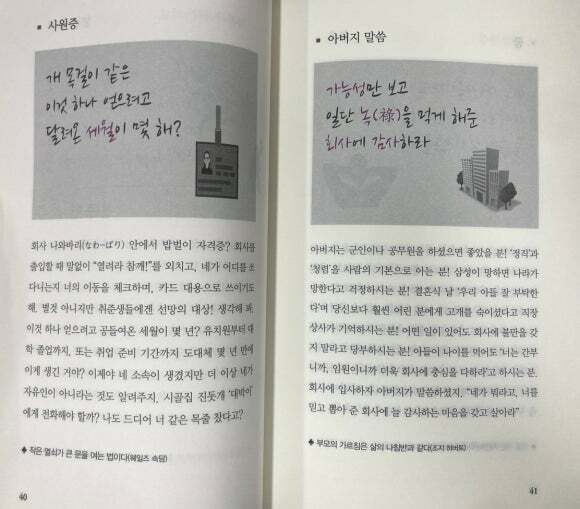 ■ 사원증
개 목걸이 같은
이것 하나 얻으려고
달려온 세월이 몇 해?
회사 나와바리(なわ-ばり) 안에서 밥벌이 자격증? 회사를
출입할 때 말없이 “열려라 참깨!”를 외치고, 네가 어디를 쏘
다니는지 너의 이동을 체크하며, 카드 대용으로 쓰이기도
해. 별것 아니지만 취준생들에겐 선망의 대상! 생각해 봐,
이것 하나 얻으려고 공들여온 세월이 몇 년? 유치원부터 대
학 졸업까지, 또는 취업 준비 기간까지 도대체 몇 년 만에
이게 생긴 거야? 이제야 네 소속이 생겼지만 더 이상 네가
자유인이 아니라는 것도 알려주지. 시골집 진돗개 ‘대박이’
에게 전화해야 할까? 나도 드디어 너 같은 목줄 찼다고?
◆ 작은 열쇠가 큰 문을 여는 법이다(웨일즈 속담)
40
■ 아버지 말씀
가능성만 보고
일단 녹(祿)을 먹게 해준
회사에 감사하라
아버지는 군인이나 공무원을 하셨으면 좋았을 분! ‘정직’과
‘청렴’을 사람의 기본으로 아는 분! 삼성이 망하면 나라가
망한다고 걱정하시는 분! 결혼식 날 ‘우리 아들 잘 부탁한
다’며 당신보다 훨씬 어린 분에게 고개를 숙이셨다고 직장
상사가 기억하시는 분! 어떤 일이 있어도 회사에 불만을 갖
지 말라고 당부하시는 분! 아들이 나이를 먹어도 ‘너는 간부
니까, 임원이니까 더욱 회사에 충심을 다하라’고 하시는 분.
회사에 입사하자 아버지가 말씀하셨지. “네가 뭐라고, 너를
믿고 뽑아 준 회사에 늘 감사하는 마음을 갖고 살아라”
◆ 부모의 가르침은 삶의 나침반과 같다(조지 허버트)
41